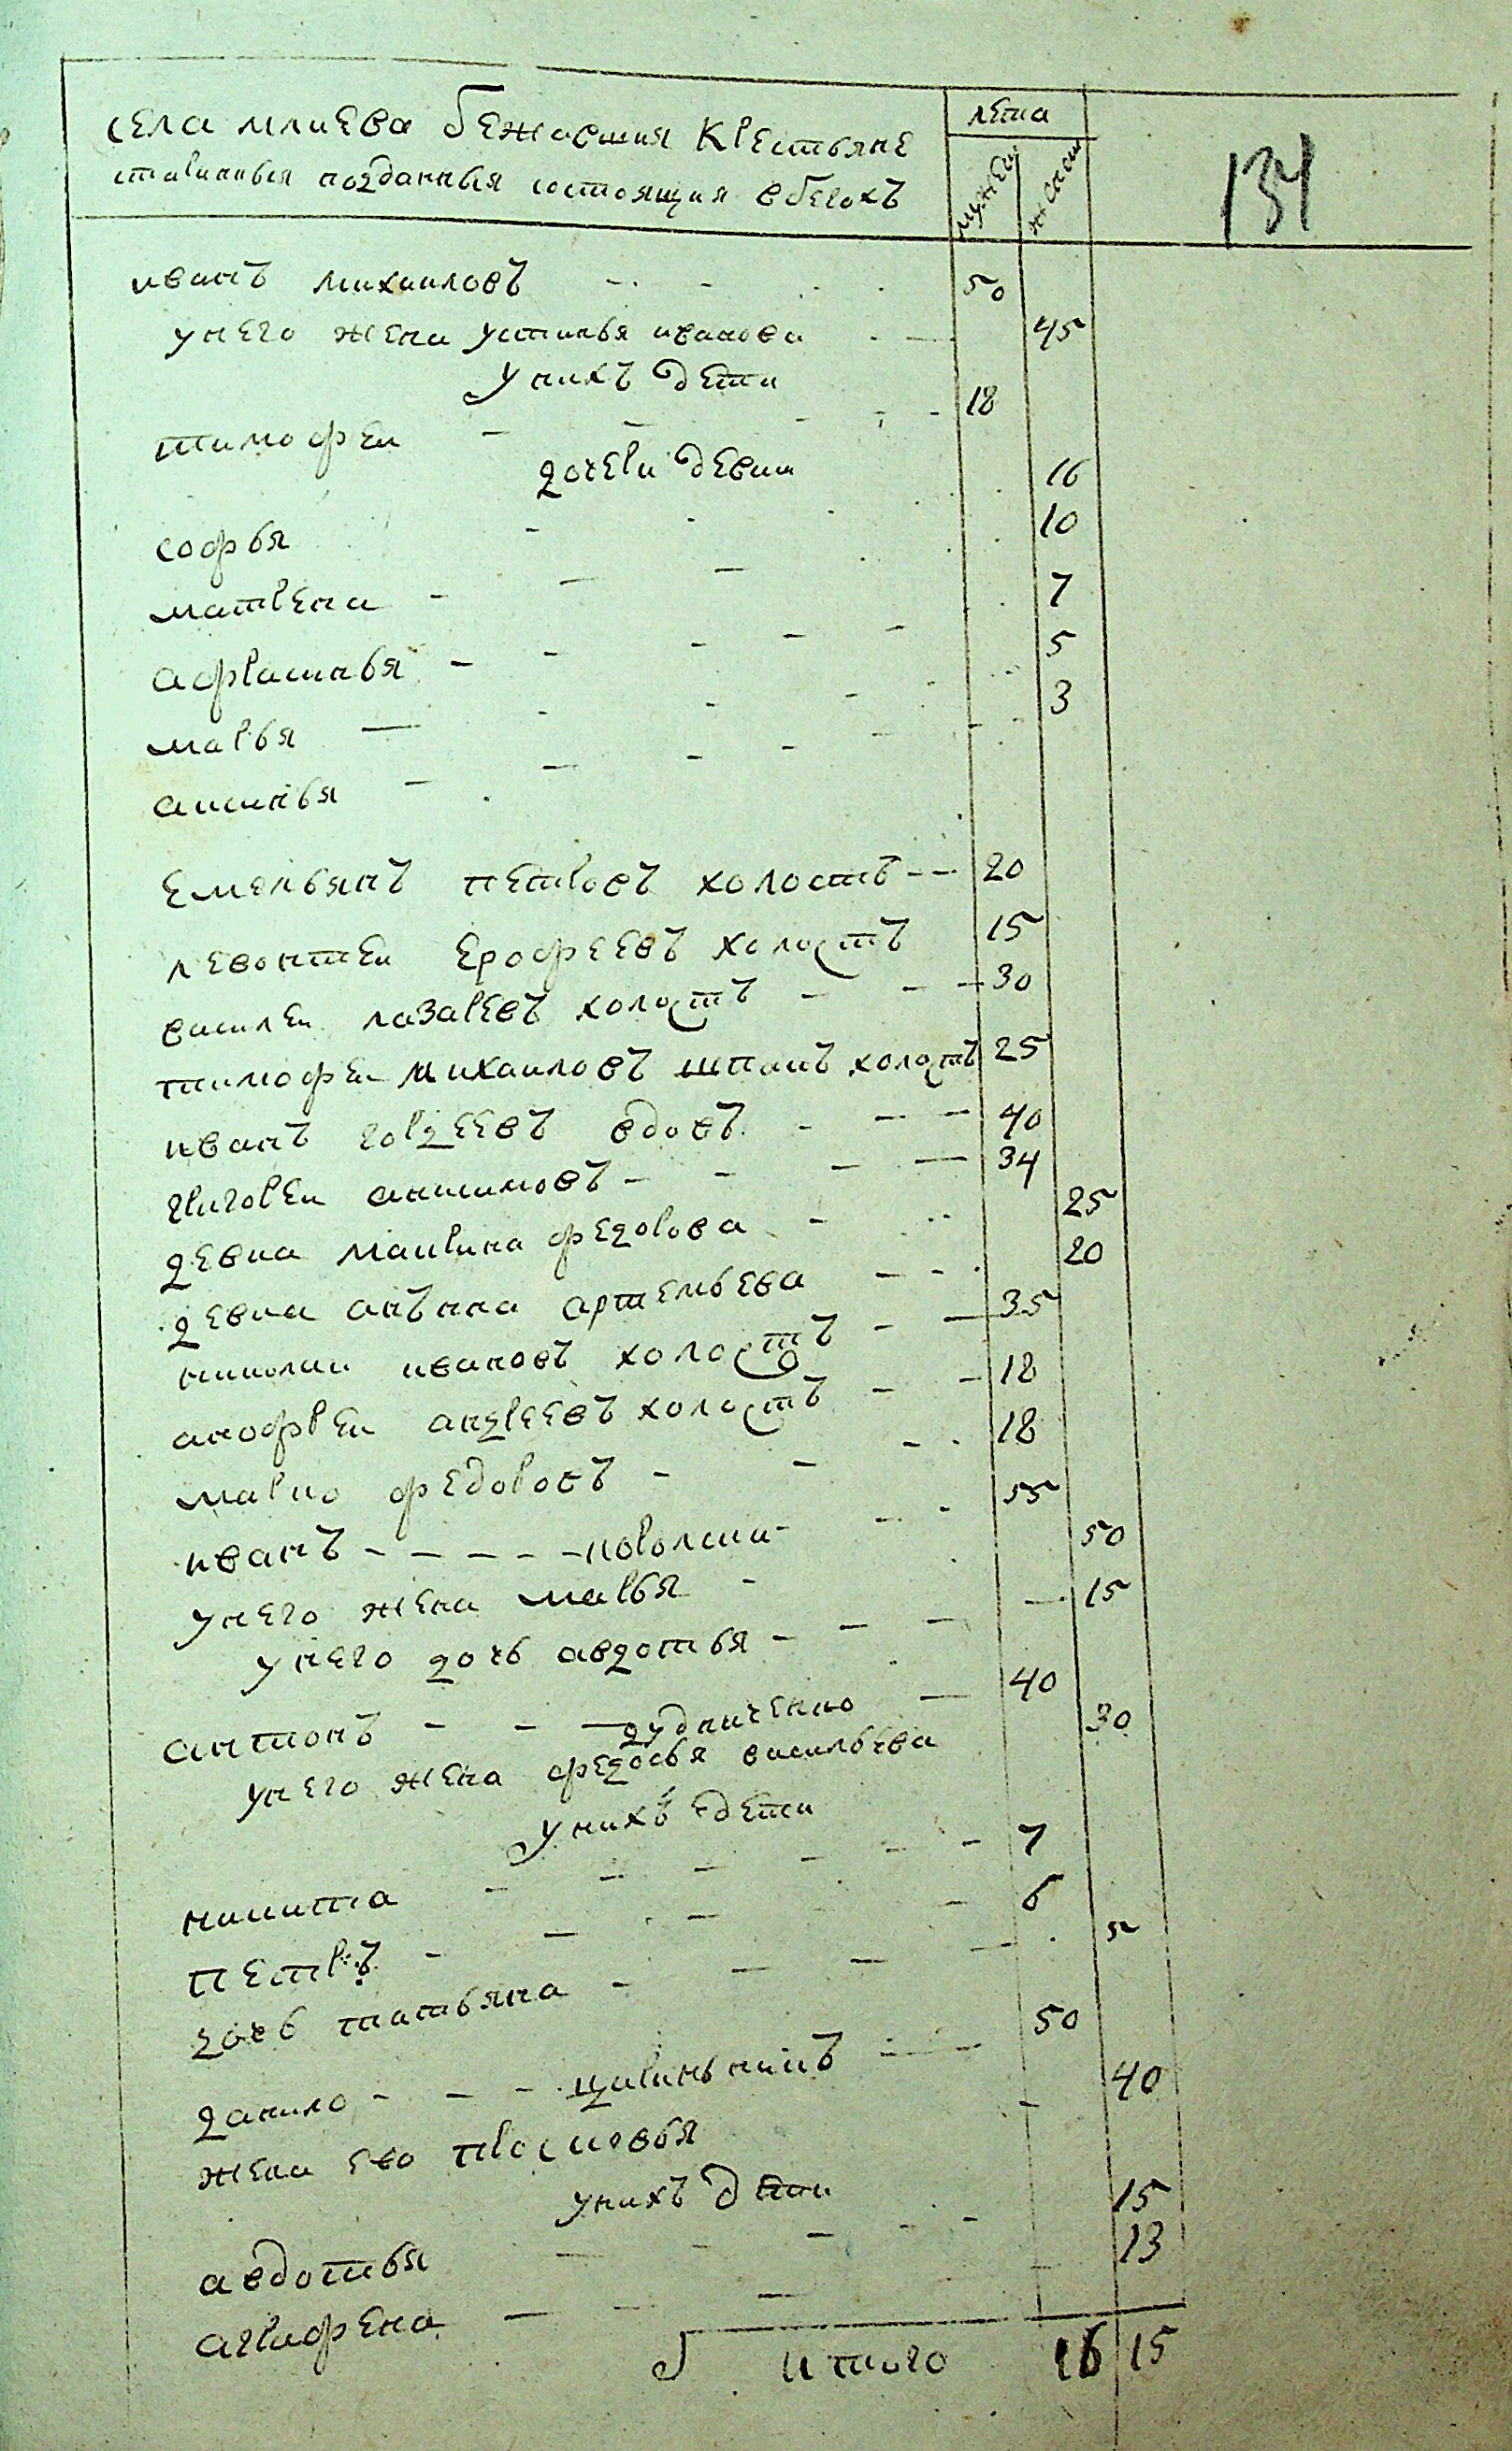 села млиева бежавшия крестьяне
старинныя позданныя состоящия вбегахъ
лета
мужес
женск
134
иванъ михаиловъ 50
унего жена устинья иванова 45
унихъ дети
тимофеи 18
дочери девки
софья 16
матрена 10
афрасинья 7
марья 5
аксинья 3
емельянъ петровъ холостъ 20
левонтеи ерофеевъ холостъ 15
василеи лазаревъ холостъ 30
тимофеи михаиловъ шпакъ холостъ 25
иванъ гордеевъ вдовъ 40
григореи анисимовъ 34
девка маирина федорова 25
девка анъна артемьева 20
николаи ивановъ холостъ 35
анофреи андреевъ холостъ 18
марко федоровъ 18
иванъ 55
унего жена марья 50
унего дочь авдотья 15
антонъ дудниченко 40
унего жена федосья васильева 30
унихъ дети
никита 7
петръ 6
дочь татьяна 5
данило 50
жена ево прасковья 40
унихъ дети
авдотья 15
аграфена 13
итого 16 15